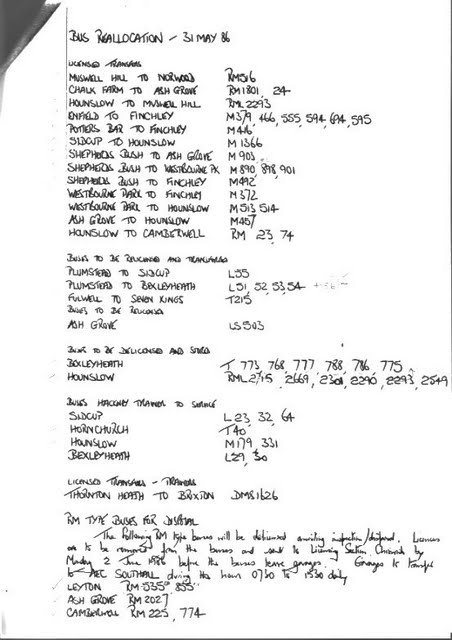 BUS REALLOCATION - 31 MAY 86
LICENSED TRANSFERS
MUSWELL HILL TO NORWOOD RM516
CHALK FARM TO ASH GROVE RM1801, 24
HOUNSLOW TO MUSWELL HILL RML2293
ENFIELD TO FINCHLEY M379, 466, 555, 594, 694, 595
POTTERS BAR TO FINCHLEY M416
SIDCUP TO HOUNSLOW M1366
SHEPHERDS BUSH TO ASH GROVE M903
SHEPHERDS BUSH TO WESTBOURNE PK M890, 898, 901
SHEPHERDS BUSH TO FINCHLEY M492
WESTBOURNE PARK TO FINCHLEY M372
WESTBOURNE PARK TO HOUNSLOW M513, 514
ASH GROVE TO HOUNSLOW M457
HOUNSLOW TO CAMBERWELL RM 23, 74
BUSES TO BE RELICENSED AND TRANSFERRED
PLUMSTEAD TO SIDCUP L55
PLUMSTEAD TO BEXLEYHEATH L51, 52, 53, 54
FULWELL TO SEVEN KINGS T215
BUSES TO BE RELICENSED
ASH GROVE LS503
BUSES TO BE DELICENSED AND STORED
BEXLEYHEATH T 773, 768, 777, 788, 786, 775
HOUNSLOW RML2715, 2669, 2301, 2290, 2293, 2549
BUSES TRAINER TO SERVICE
SIDCUP L23, 32, 64
HORNCHURCH T40
HOUNSLOW M179, 331
BEXLEYHEATH L29, 30
LICENSED TRANSFERS - TRAINERS
THORNTON HEATH TO BRIXTON DMS1626
RM TYPE BUSES FOR DISPOSAL
The following RM type buses will be delicensed awaiting inspection/disposal. Licences
are to be removed from the buses and sent to Licensing Section by
Monday 2 June 1986 before the buses leave garages. Garages to transfer
to AEC SOUTHALL during the hours 0730 to 1530 daily
LEYTON RM 535, 855
ASH GROVE RM 2027
CAMBERWELL RM 225, 774